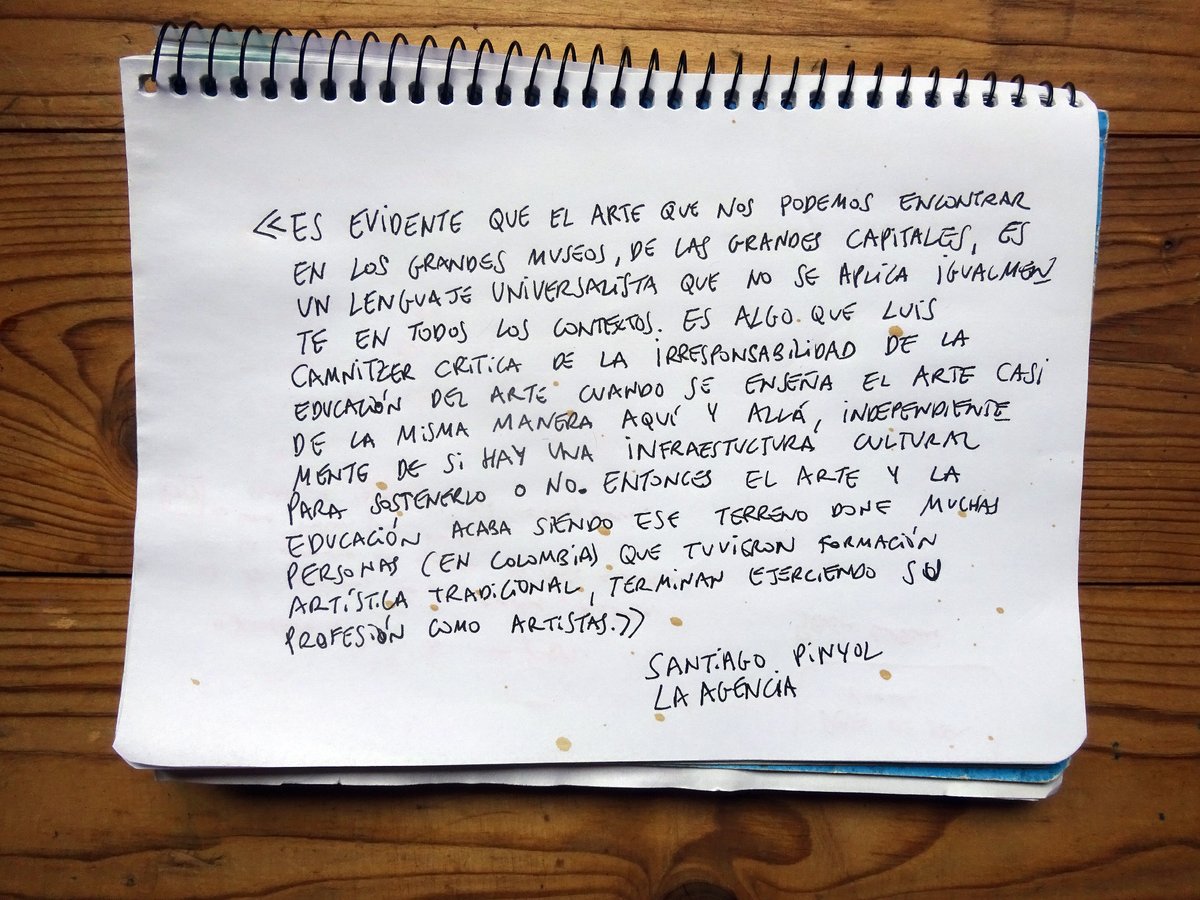 «ES EVIDENTE QUE EL ARTE QUE NOS PODEMOS ENCONTRAR
EN LOS GRANDES MUSEOS, DE LAS GRANDES CAPITALES, ES
UN LENGUAJE UNIVERSALISTA QUE NO SE APLICA IGUALMEN
TE EN TODOS LOS CONTEXTOS. ES ALGO QUE LUIS
CAMNITZER CRITICA DE LA IRRESPONSABILIDAD DE LA
EDUCACIÓN DEL ARTE CUANDO SE ENSEÑA EL ARTE CASI
DE LA MISMA MANERA AQUÍ Y ALLÁ, INDEPENDIENTE
MENTE DE SI HAY UNA INFRAESTUCTURA CULTURAL
PARA SOSTENERLO O NO. ENTONCES EL ARTE Y LA
EDUCACIÓN ACABA SIENDO ESE TERRENO DONE MUCHAS
PERSONAS (EN COLOMBIA) QUE TUVIERON FORMACIÓN
ARTÍSTICA TRADICIONAL, TERMINAN EJERCIENDO SU
PROFESIÓN COMO ARTISTAS.»
SANTIAGO PINYOL
LA AGENCIA